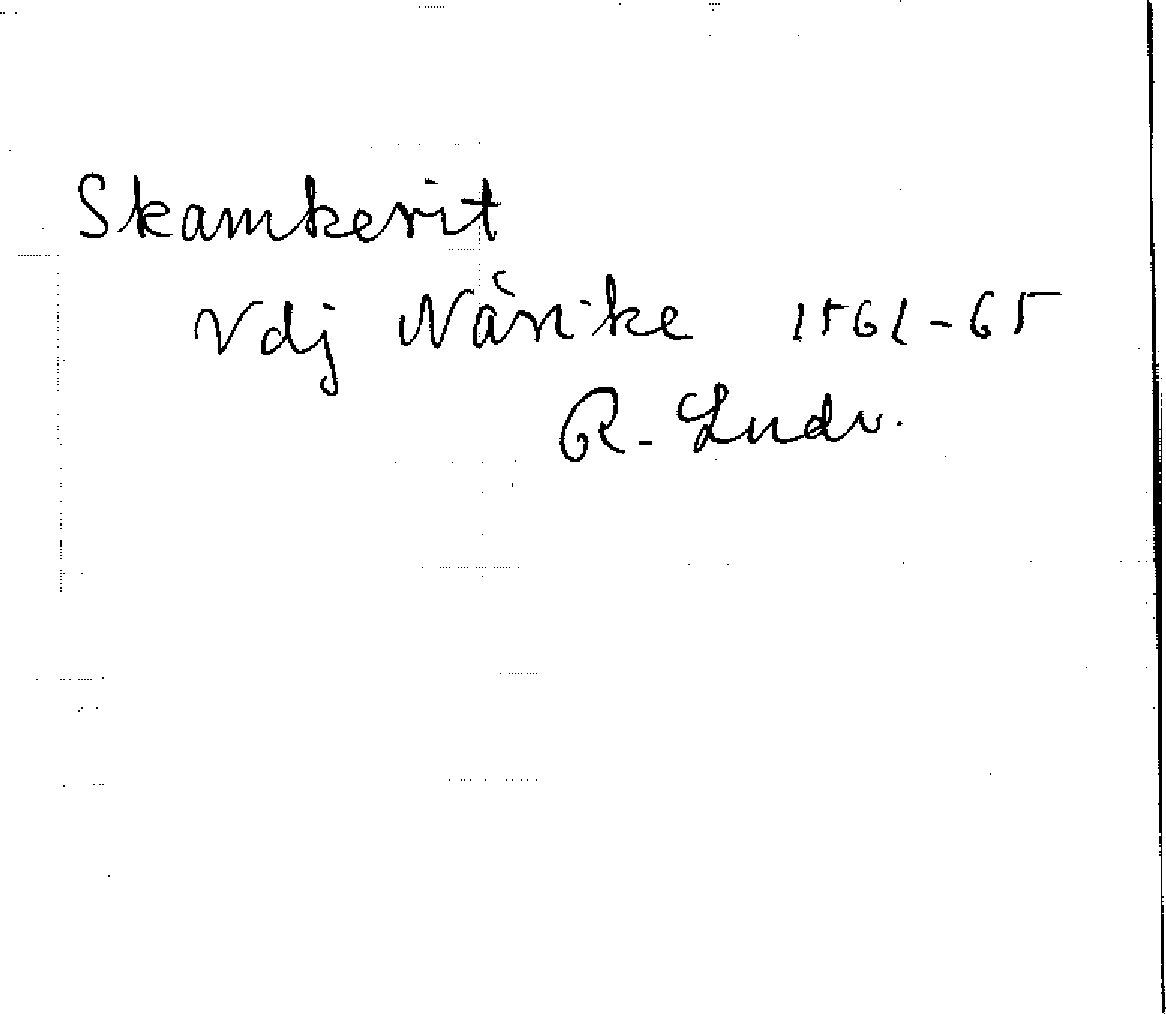 Skamkerit
Vdj Närike 1562-65
R. Ludv.